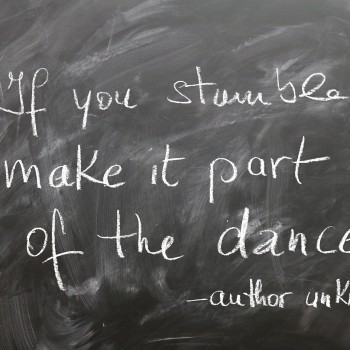 If you stumble
make it part
of the dance
-author unk